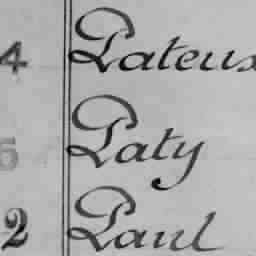 4 Pateux
5 Paty
2 Paul